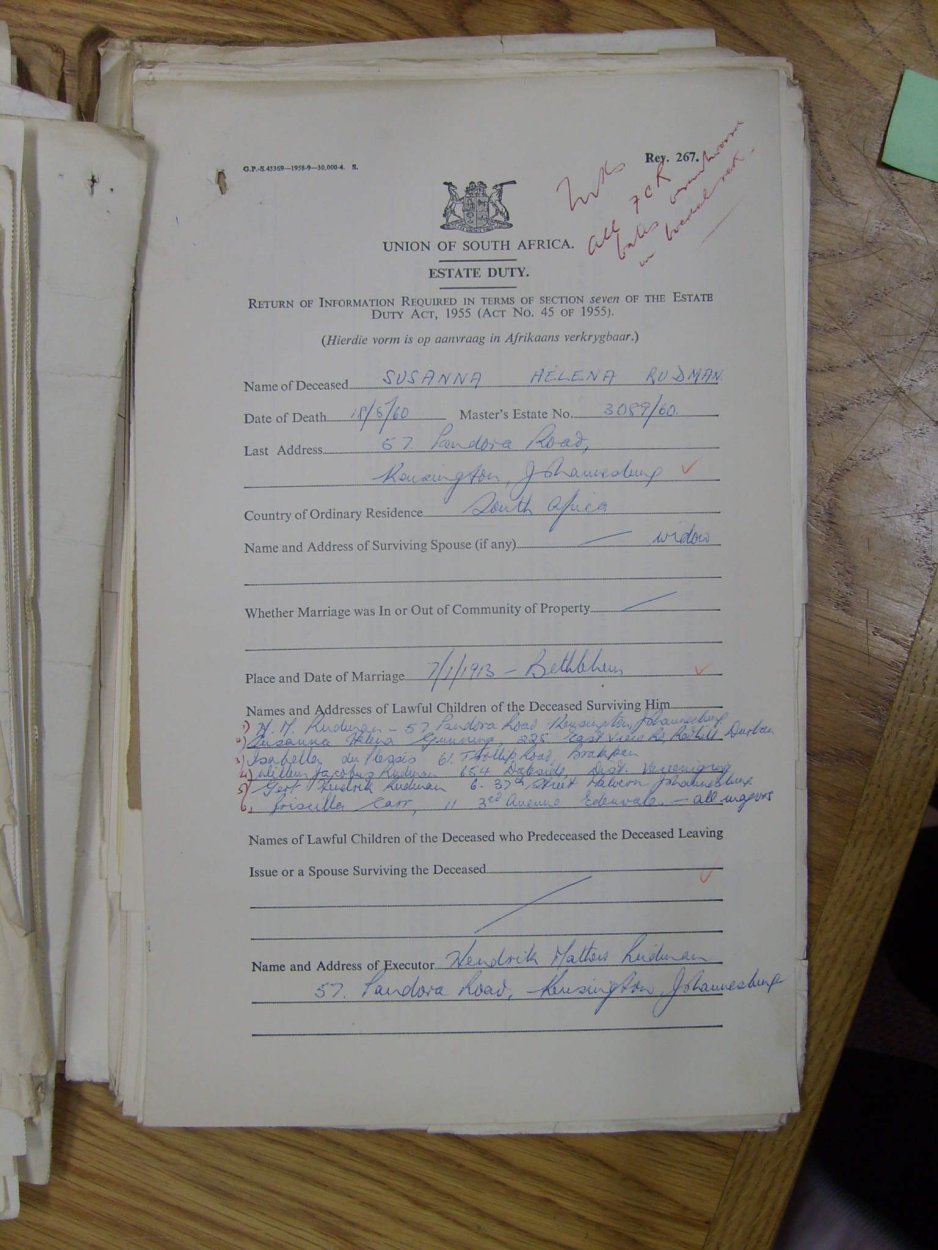 G.P.-S.43369—1958-9—30,000-4. S.
Rev. 267.
all 7 C K
in
UNION OF SOUTH AFRICA.
ESTATE DUTY.
RETURN OF INFORMATION REQUIRED IN TERMS OF SECTION seven OF THE ESTATE
DUTY ACT, 1955 (ACT No. 45 OF 1955).
(Hierdie vorm is op aanvraag in Afrikaans verkrygbaar.)
Name of Deceased SUSANNA HELENA RUDMAN
Date of Death 18/5/60 Master's Estate No. 3089/60.
Last Address 57. Pandora Road,
Kensington, Johannesburg
Country of Ordinary Residence South Africa
Name and Address of Surviving Spouse (if any) — widow
Whether Marriage was In or Out of Community of Property
Place and Date of Marriage 7/1/1913 – Bethlehem
Names and Addresses of Lawful Children of the Deceased Surviving Him
1) H. M. Rudman – 57 Pandora Road Kensington Johannesburg
2) Susanna Helena 225 East View Rd, Redhill Durban
3) Isabella du Plessis 61. Road, Brakpan
4) Willem Jacobus Rudman 654 Dist. Vereeniging
5) Gert Hendrik Rudman 6. 37th Street Malvern Johannesburg
6, Priscilla Carr, 11 3rd Avenue Edenvale. – all majors
Names of Lawful Children of the Deceased who Predeceased the Deceased Leaving
Issue or a Spouse Surviving the Deceased
Name and Address of Executor Hendrik Mattheus Rudman
57. Pandora Road, Kensington, Johannesburg